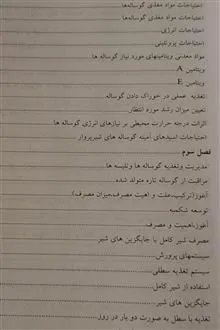 احتیاجات مواد مغذی گوساله‌ها
احتیاجات مواد مغذی گوساله‌ها
احتیاجات انرژی
احتیاجات پروتئینی
مواد معدنی ویتامینهای مورد نیاز گوساله ها
ویتامین A
ویتامین E
تغذیه عملی در خوراک دادن گوساله
تعیین میزان رشد مورد انتظار
اثرات درجه حرارت محیطی بر نیازهای انرژی گوساله ها
احتیاجات اسیدهای آمینه گوساله های شیرپروار
فصل سوم
مدیریت وتغذیه گوساله ها وتلیسه ها
مراقبت از گوساله تازه متولد شده
آغوز(ترکیب،علت و اهیت مصرف،میزان مصرف)
توسعه شکمبه
آغوز،اهمیت و مصرف
مصرف شیر کامل یا جایگزین های شیر
سیستمهای پرورش
سیستم تغذیه سطلی
استفاده از شیر کامل
جایگزین های شیر
تغذیه با سطل به صورت دو بار در روز